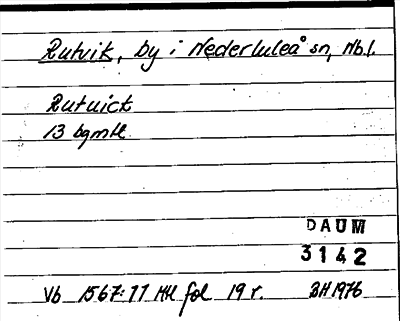 Rutvik, by i Nederluleå sn, Nb.l.
Rutuict
13 bgmtl
DAUM
3142
Vb 1567:11 Mtl fol 19 r. BH 1976